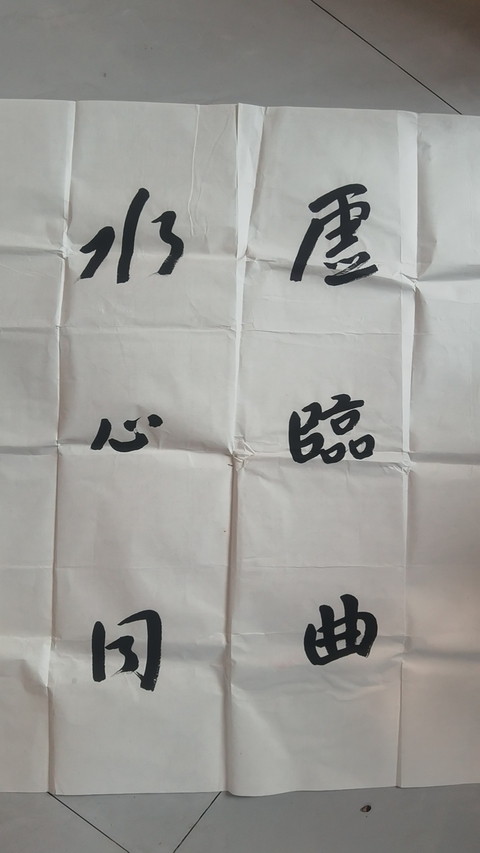 虛臨曲
水心同